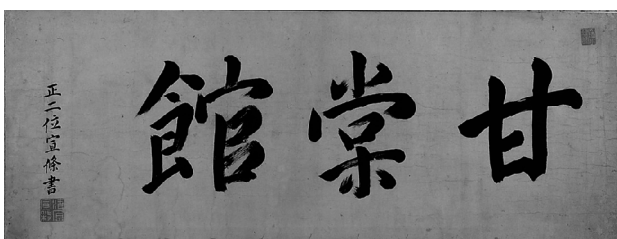 甘棠館
正二位宣條書